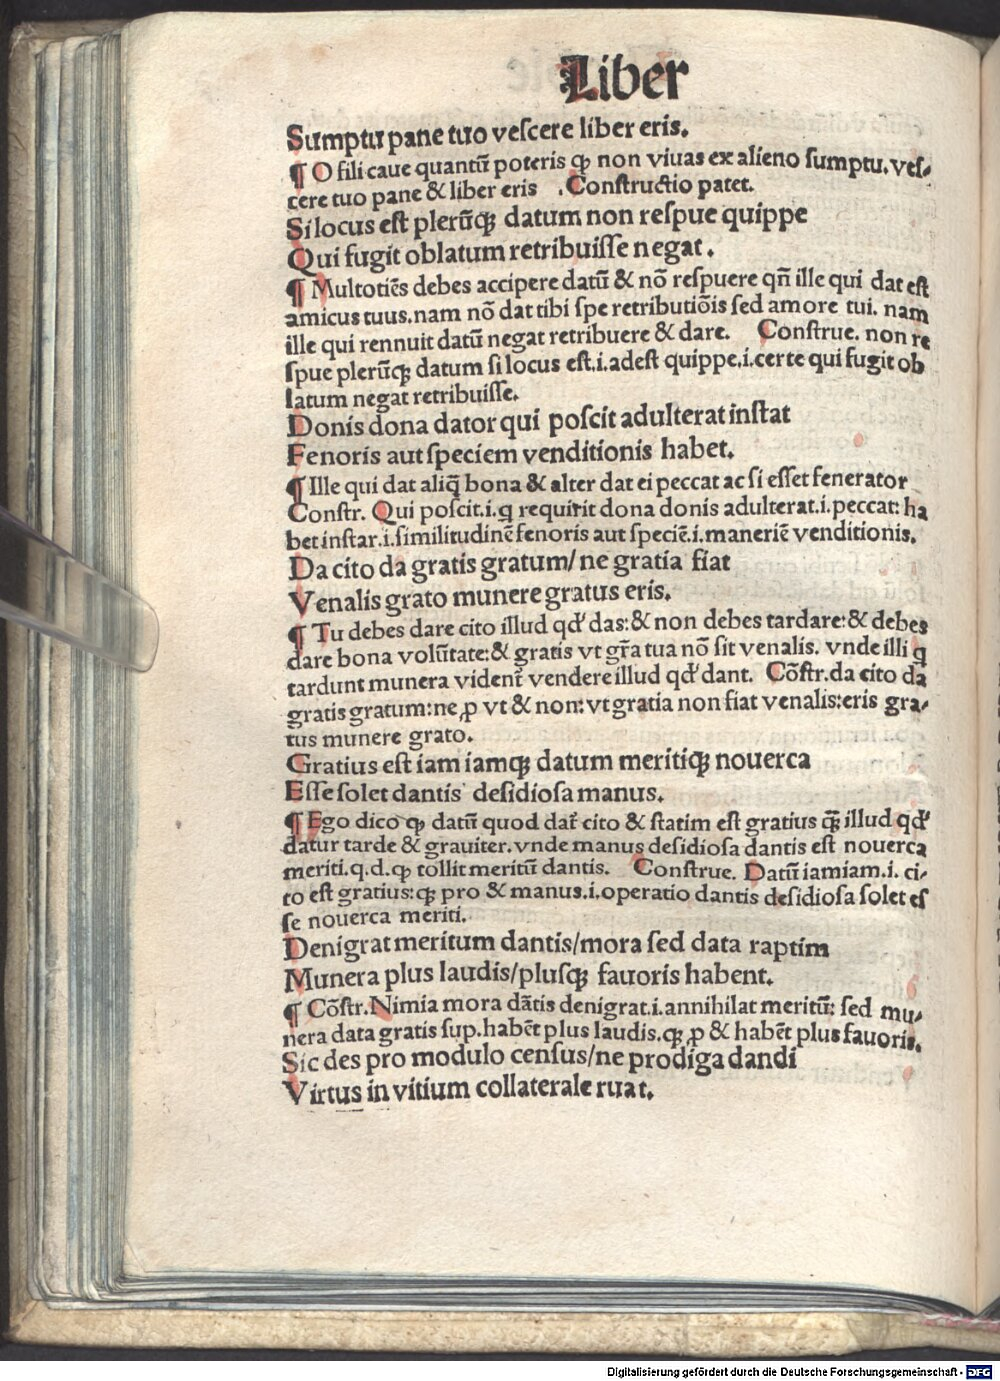 Liber
Sumptu pane tuo veſcere liber eris.
¶ O fili caue quantū poteris ꝙ non viuas ex alieno ſumptu. veſ-
cere tuo pane & liber eris . Conſtructio patet.
Si locus eſt plerūqꝫ datum non reſpue quippe
Qui fugit oblatum retribuiſſe negat.
¶ Multotiēs debes accipere datū & nō reſpuere qn̄ ille qui dat eſt
amicus tuus. nam nō dat tibi ſpe retributiōis ſed amore tui. nam
ille qui rennuit datū negat retribuere & dare. Conſtrue. non re
ſpue plerūqꝫ datum ſi locus eſt .i. adeſt quippe .i. certe qui fugit ob
latum negat retribuiſſe.
Donis dona dator qui poſcit adulterat inſtat
Fenoris aut ſpeciem venditionis habet.
¶ Ille qui dat aliq̄ bona & alter dat ei peccat ac ſi eſſet fenerator
Conſtr. Qui poſcit .i. q requirit dona donis adulterat .i. peccat: ha
bet inſtar .i. ſimilitudinē fenoris aut ſpeciē .i. maneriē venditionis.
Da cito da gratis gratum/ ne gratia fiat
Venalis grato munere gratus eris.
¶ Tu debes dare cito illud qd' das: & non debes tardare: & debes
dare bona volūtate: & gratis vt gr̄a tua nō ſit venalis. vnde illi q
tardunt munera vident̄ vendere illud qd' dant. Cōſtr. da cito da
gratis gratum: ne ꝓ vt & non: vt gratia non fiat venalis: eris gra-
tus munere grato.
Gratius eſt iam iamqꝫ datum meritiqꝫ nouerca
Eſſe ſolet dantis deſidioſa manus.
¶ Ego dico ꝙ datū quod dat̄ cito & ſtatim eſt gratius qꝫ̄ illud qd'
datur tarde & grauiter. vnde manus deſidioſa dantis eſt nouerca
meriti. q.d. ꝙ tollit meritū dantis. Conſtrue. Datū iamiam .i. ci-
to eſt gratius: qꝫ pro & manus .i. operatio dantis deſidioſa ſolet eſ
ſe nouerca meriti.
Denigrat meritum dantis/mora ſed data raptim
Munera plus laudis/pluſqꝫ fauoris habent.
¶ Cōſtr. Nimia mora dātis denigrat .i. annihilat meritū: ſed mu-
nera data gratis ſup. habēt plus laudis. qꝫ ꝓ & habēt plus fauoris.
Sic des pro modulo cenſus/ne prodiga dandi
Virtus in vitium collaterale ruat.
Digitalisierung gefördert durch die Deutsche Forschungsgemeinschaft - DFG